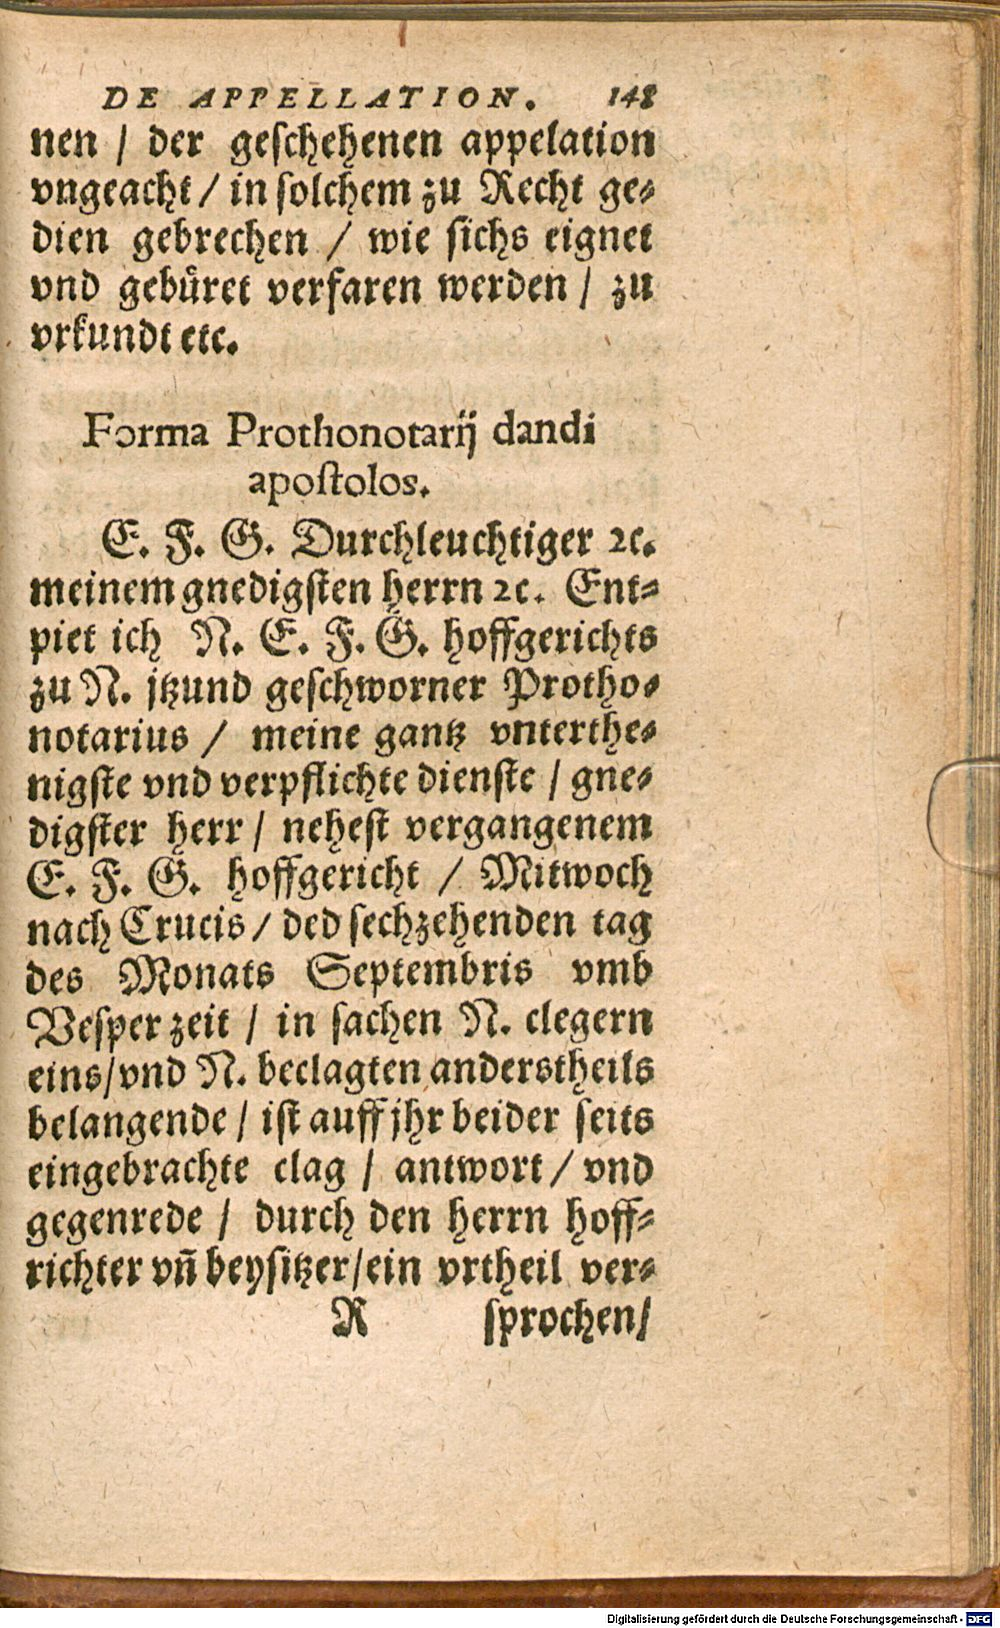 DE APPELLATION. 148
nen / der geschehenen appelation
vngeacht / in solchem zu Recht ge-
dien gebrechen / wie sichs eignet
vnd gebuͤret verfaren werden / zu
vrkundt etc.
Forma Prothonotarij dandi
apostolos.
E. F. G. Durchleuchtiger ꝛc.
meinem gnedigsten herrn ꝛc. Ent-
piet ich N. E. F. G. hoffgerichts
zu N. jtzund geschworner Protho-
notarius / meine gantz vnterthe-
nigste vnd verpflichte dienste / gne-
digster herr / nehest vergangenem
E. F. G. hoffgericht / Mitwoch
nach Crucis / ded sechzehenden tag
des Monats Septembris vmb
Vesper zeit / in sachen N. clegern
eins / vnd N. beclagten anderstheils
belangende / ist auff jhr beider seits
eingebrachte clag / antwort / vnd
gegenrede / durch den herrn hoff-
richter vñ beysitzer / ein vrtheil ver-
R sprochen /
Digitalisierung gefördert durch die Deutsche Forschungsgemeinschaft - DFG